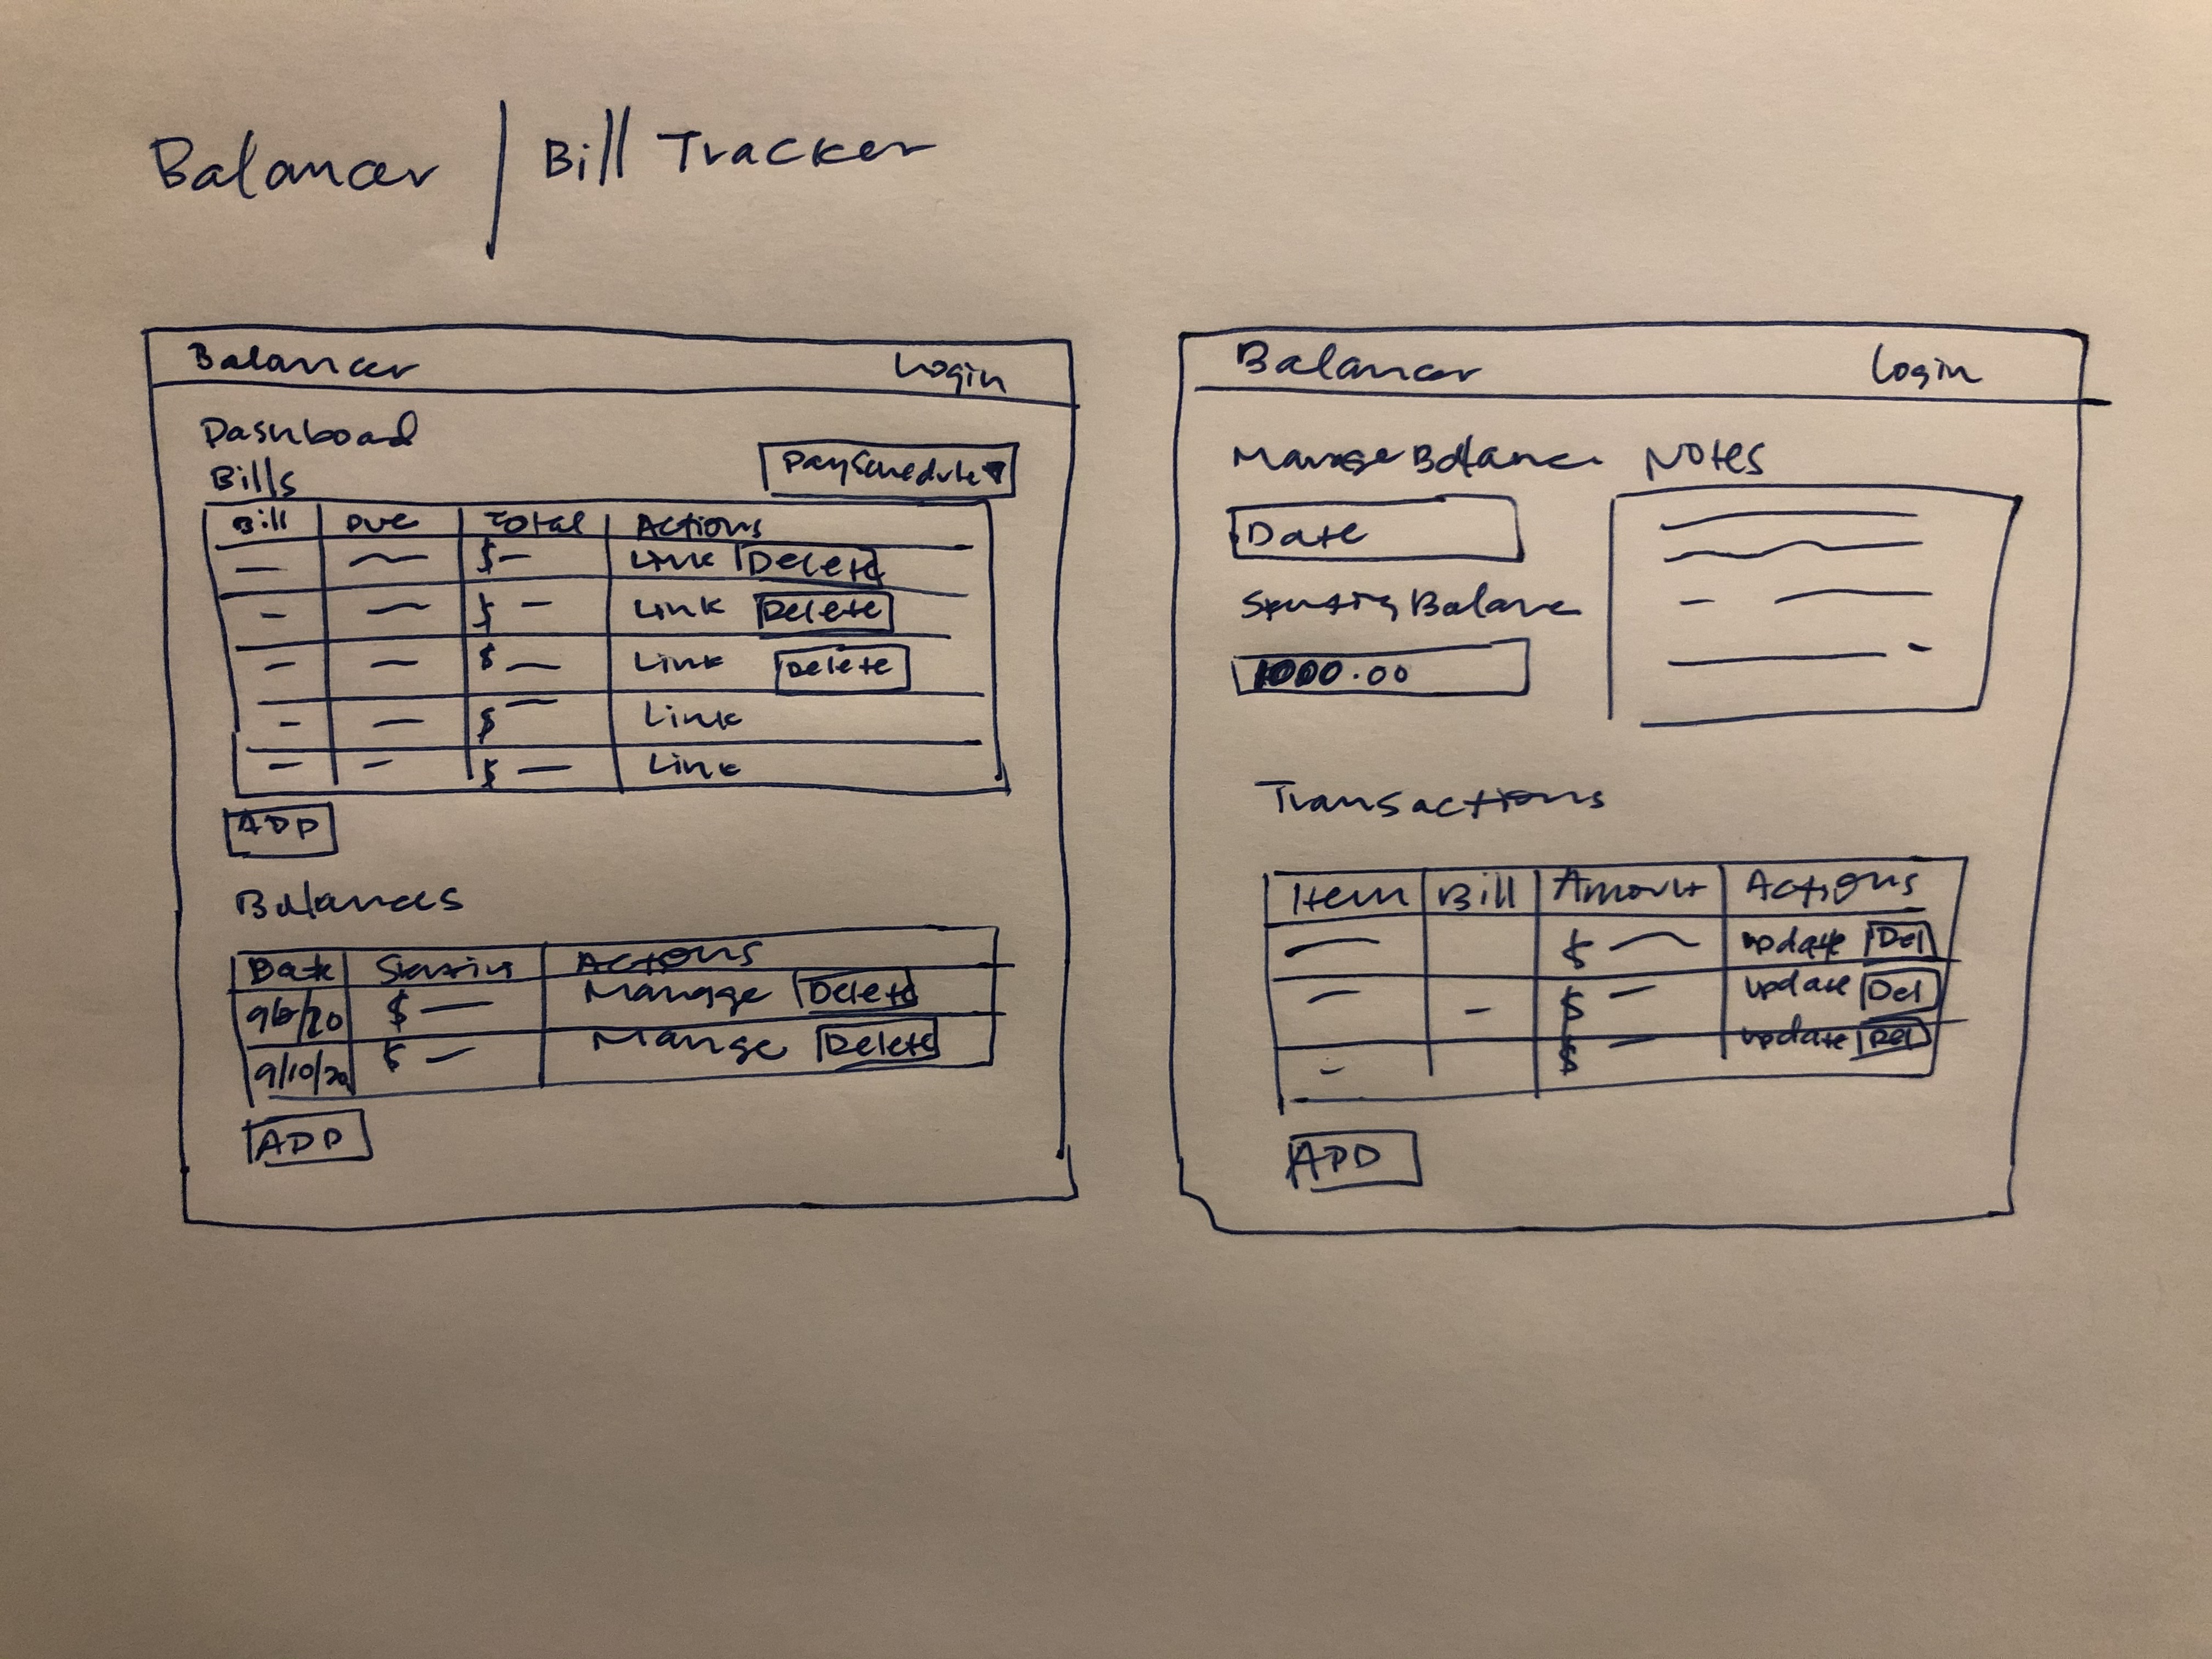 Balancer | Bill Tracker
Balancer Login
Dashboard
Bills PaySchedule
Bill Due Total Actions
$ Link Delete
$ Link Delete
$ Link Delete
$ Link
$ Link
ADD
Balances
Date Starting Actions
9/6/20 $ Manage Delete
9/10/20 $ Mange Delete
ADD
Balancer Login
Manage Balance Notes
Date
Balance
1000.00
Transactions
Item Bill Amount Actions
$ update Del
$ update Del
$ update Del
ADD